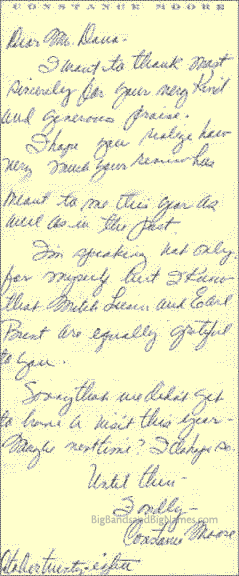 CONSTANCE MOORE
Dear Mr. Dana -
I want to thank most
sincerely for your very kind
and generous praise.
I hope you realize how
very much your review has
meant to me this year as
well as in the past.
I'm speaking not only
for myself but I know
that Mitch Leisen and Earl
Brent are equally grateful
to you.
Sorry that we didn't get
to have a visit this year -
Maybe next time? I do hope so.
Until then -
Fondly -
BigBandsandBigNames.com
Constance Moore
October twenty-eighth